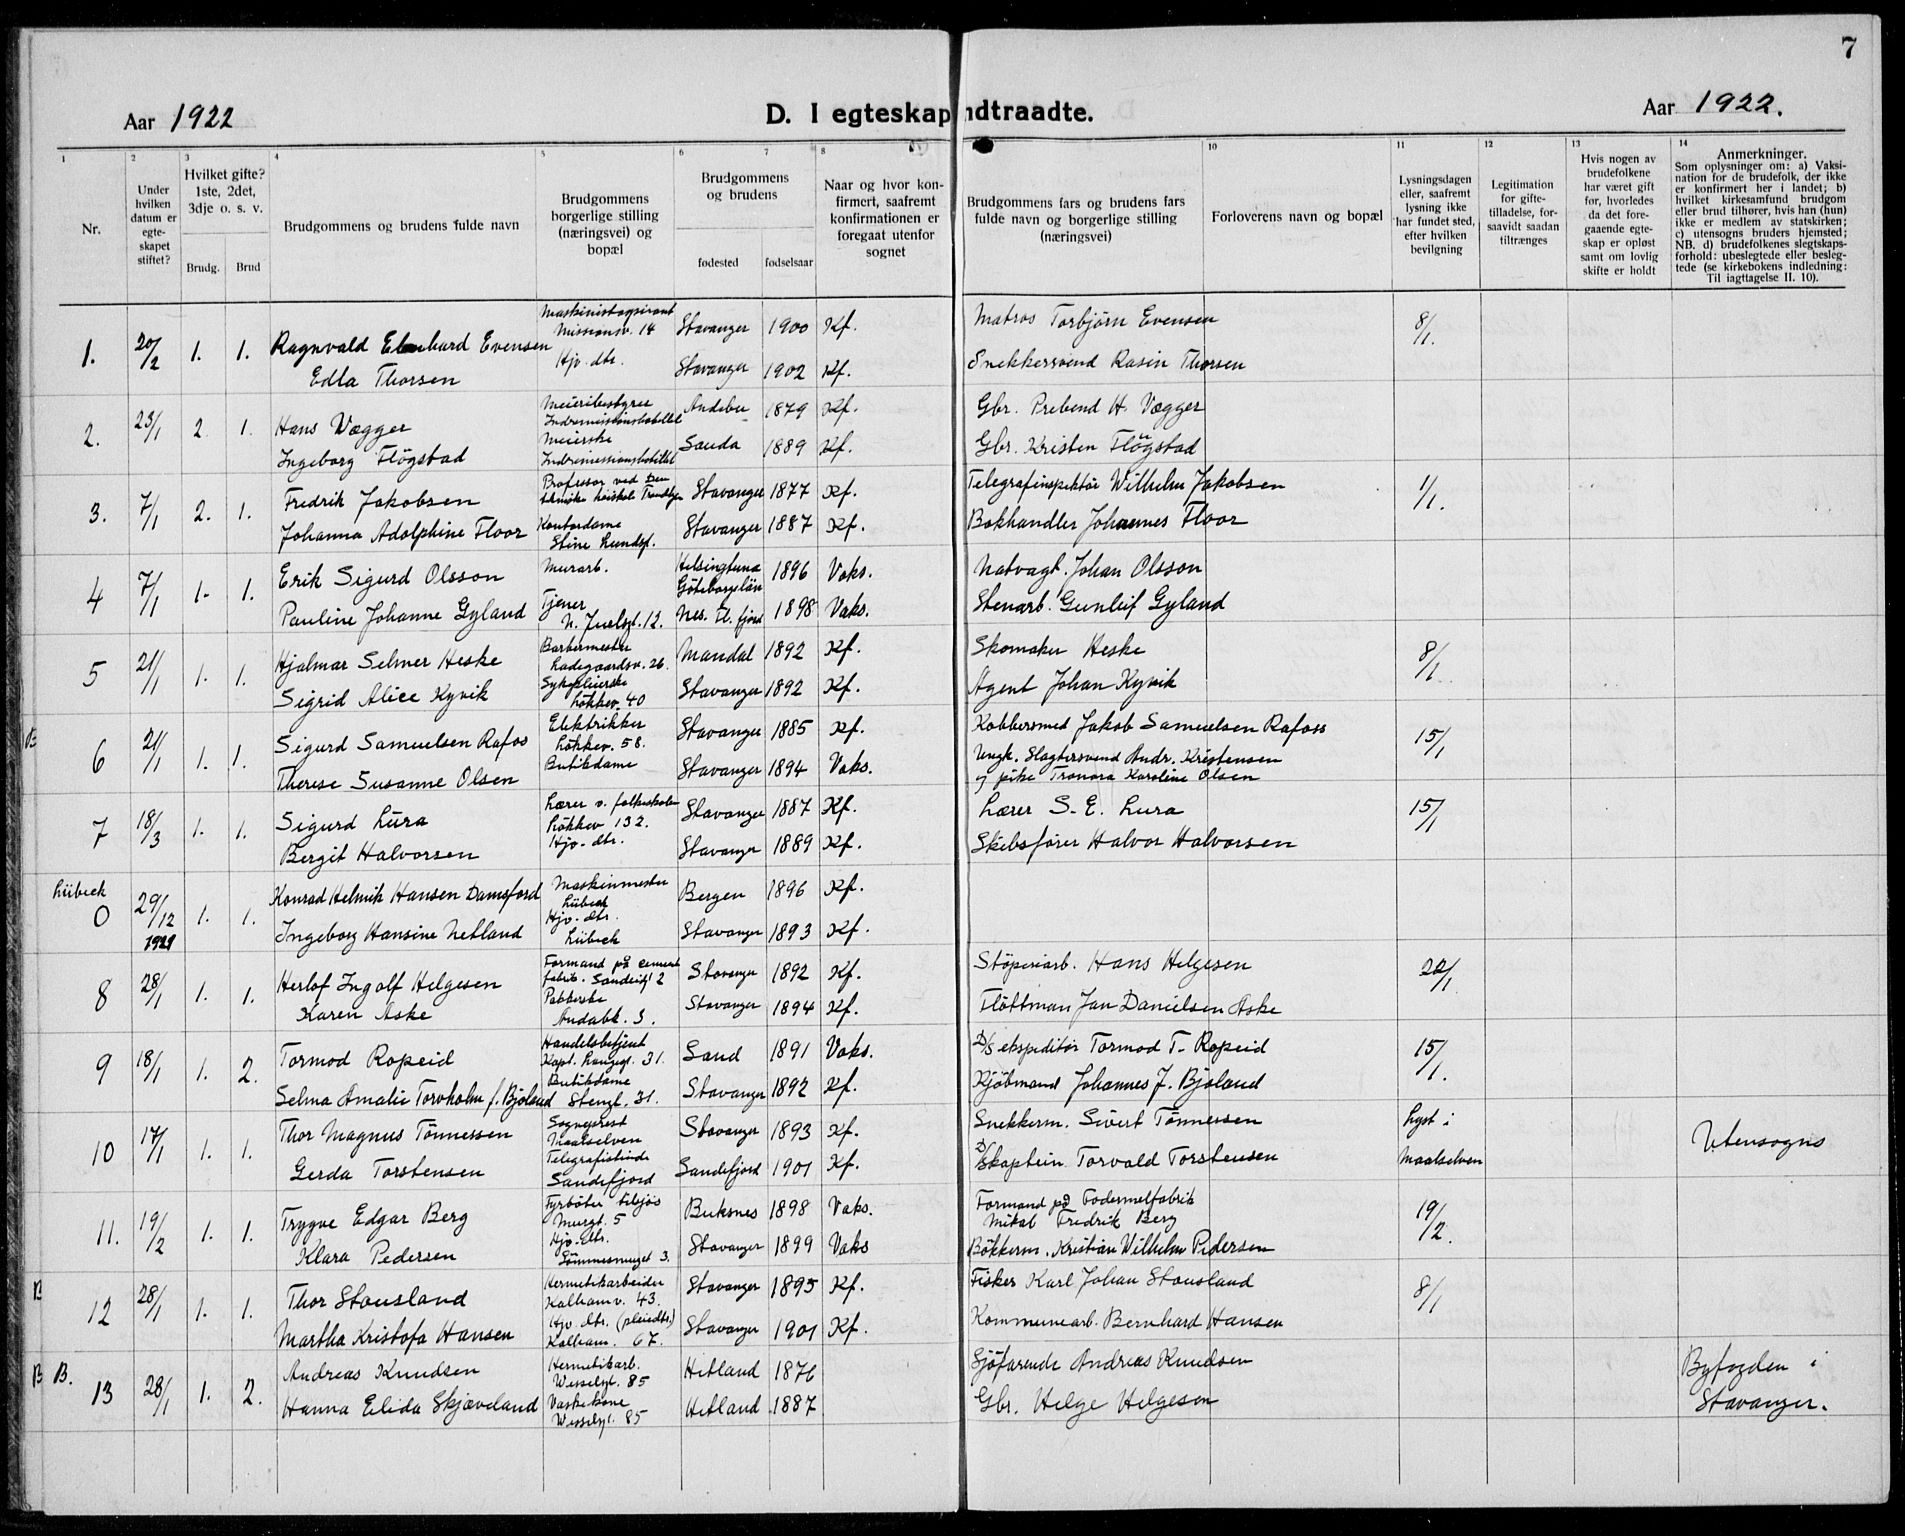 7
Aar 1922
D. I egteskap indtraadte.
Aar 1922.
1 2 3 4 5 6 7 8 10 11 12 13 14
Nr.
Under hvilken datum er egte-skapet stiftet?
Hvilket gifte? 1ste, 2det, 3dje o. s. v.
Brudg. Brud
Brudgommens og brudens fulde navn
Brudgommens borgerlige stilling (næringsvei) og bopæl
Brudgommens og brudens
fødested fødselsaar
Naar og hvor kon-firmert, saafremt konfirmationen er foregaat utenfor sognet
Brudgommens fars og brudens fars fulde navn og borgerlige stilling (næringsvei)
Forloverens navn og bopæl
Lysningsdagen eller, saafremt lysning ikke har fundet sted, efter hvilken bevilgning
Legitimation for gifte-tilladelse, for-saavidt saadan tiltrænges
Hvis nogen av brudefolkene har været gift før, hvorledes da det fore-gaaende egte-skap er opløst samt om lovlig skifte er holdt
Anmerkninger.
Som oplysninger om: a) Vaksi-nation for de brudefolk, der ikke er konfirmert her i landet; b) hvilket kirkesamfund brudgom eller brud tilhører, hvis han (hun) ikke er medlem av statskirken; c) utensogns bruders hjemsted; NB. d) brudefolkenes slegtskaps-forhold: ubeslegtede eller besleg-tede (se kirkebokens indledning: Til iagttagelse II. 10).
1. 20/2 1. 1. Ragnvald Evensen Maskinistaspirant Missionsv. 14 Stavanger 1900 Kf. Matros Torbjørn Evensen 8/1.
Edla Thorsen Hjv. dtr. Stavanger 1902 Kf. Snekkersvend Rasin Thorsen
2. 23/1 2. 1. Hans Vægger Meieribestyrer Indremissionshotellet Andebu 1879 Kf. Gbr. Prebend H. Vægger
Ingeborg Fløgstad Meierske Indremissionshotellet Sauda 1889 Kf. Gbr. Kristen Fløgstad
3. 7/1 2. 1. Fredrik Jakobsen Professor ved Den tekniske høiskole Trondhjem Stavanger 1877 Kf. Telegrafinspektør Wilhelm Jakobsen 1/1.
Johanna Adolphine Floor Kontordame Stine Lundsgt. Stavanger 1887 Kf. Bokhandler Johannes Floor
4 7/1 1. 1. Erik Sigurd Olsson Murarb. Helsingtuna Göteborgslän 1896 Vaks. Natvagt. Johan Olsson
Pauline Johanne Gyland Tjener N. Juelsgt. 12. Nes. Fl. fjord 1898 Vaks. Stenarb. Gunleif Gyland
5 21/1 1. 1. Hjalmar Selmer Heske Barbermester Ladegaardsv. 26. Mandal 1892 Kf. Skomaker Heske 8/1
Sigrid Alice Kyvik Sykepleierske Løkkev. 40 Stavanger 1892 Kf. Agent Johan Kyvik
B 6 21/1 1. 1. Sigurd Samuelsen Rafos Elektrikker Løkkev. 58. Stavanger 1885 Kf. Kobbersmed Jakob Samuelsen Rafoss 15/1
Therese Susanne Olsen Butikdame Stavanger 1894 Vaks. Ungk. Slagtersvend Andr. Kristensen
og pike Tronora Karoline Olsen
7 18/3 1. 1. Sigurd Lura Lærer v. folkeskolen Løkkev 132. Stavanger 1887 Kf. Lærer S. E. Lura 15/1
Bergit Halvorsen Hjv. dtr. Stavanger 1889 Kf. Skibsfører Halvor Halvorsen
Lübeck 0 29/12 1921 1. 1. Konrad Helmik Hansen Damsford Maskinmester Lübeck Bergen 1896 Kf.
Ingeborg Hansine Netland Hjv. dtr. Lübeck Stavanger 1893 Kf.
8 28/1 1. 1. Herlof Ingolf Helgesen Formand på cement fabrik. Sandeidgt 2 Stavanger 1892 Kf. Støperiarb. Hans Helgesen 22/1
Karen Aske Pakkerske Andabk. 3. Stavanger 1894 Kf. Fløttman Jan Danielsen Aske
9 18/1 1. 2. Tormod Ropeid Handelsbetjent Kapt. Langegt. 31. Sand 1891 Vaks. D/S ekspeditør Tormod T. Ropeid 15/1.
Selma Amalie Torvholm f. Bjoland Butikdame Stengt. 31. Stavanger 1892 Kf. Kjøbmand Johannes J. Bjoland
10 17/1 1. 1. Thor Magnus Tönnessen Sogneprest Maalselven Stavanger 1893 Kf. Snekkerm. Sivert Tönnessen Lyst i Utensogns
Gerda Torstensen Telegrafistinde Sandefjord Sandefjord 1901 Kf. D/Skaptein Torvald Torstensen Maalselven
11. 19/2 1. 1. Trygve Edgar Berg Fyrbøter tilsjøs Murgt. 5 Buksnes 1898 Vaks. Formand på Fodermelfabrik 19/2.
Mikal Fredrik Berg
Klara Pedersen Hjv. dtr. Sømmesmuget 3. Stavanger 1899 Vaks Bøkkerm. Kristian Wilhelm Pedersen
B 12 28/1 1. 1. Thor Stousland Hermetikarbeider Kalhamv. 43. Stavanger 1895 Kf. Fisker Karl Johan Stousland 8/1
Martha Kristofa Hansen Hjv. dtr. (pleiedtr.) Kalham. 67. Stavanger 1901 Kf. Kommunearb. Bernhard Hansen
B B. 13 28/1 1. 2. Andreas Knudsen Hermetikarb. Wesselgt. 85 Hetland 1876 Sjøfarende Andreas Knudsen Byfogden i
Hanna Elida Skjæveland Vaskekone Wesselgt. 85 Hetland 1887 Gbr. Helge Helgesen Stavanger.